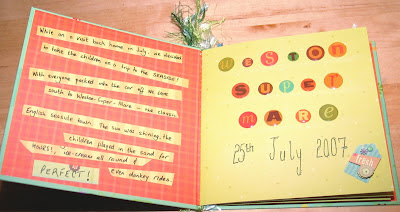 While on a visit back home in July - we decided
to take the children on a trip to the SEASIDE!
With everyone packed into the car off we came
south to Weston-Super-Mare - the classic
English seaside town. The sun was shining, the
children played in the sand for
HOURS!, ice-creams all round &
PERFECT! even donkey rides.
WESTON
SUPER
MARE
25th July 2007
fresh